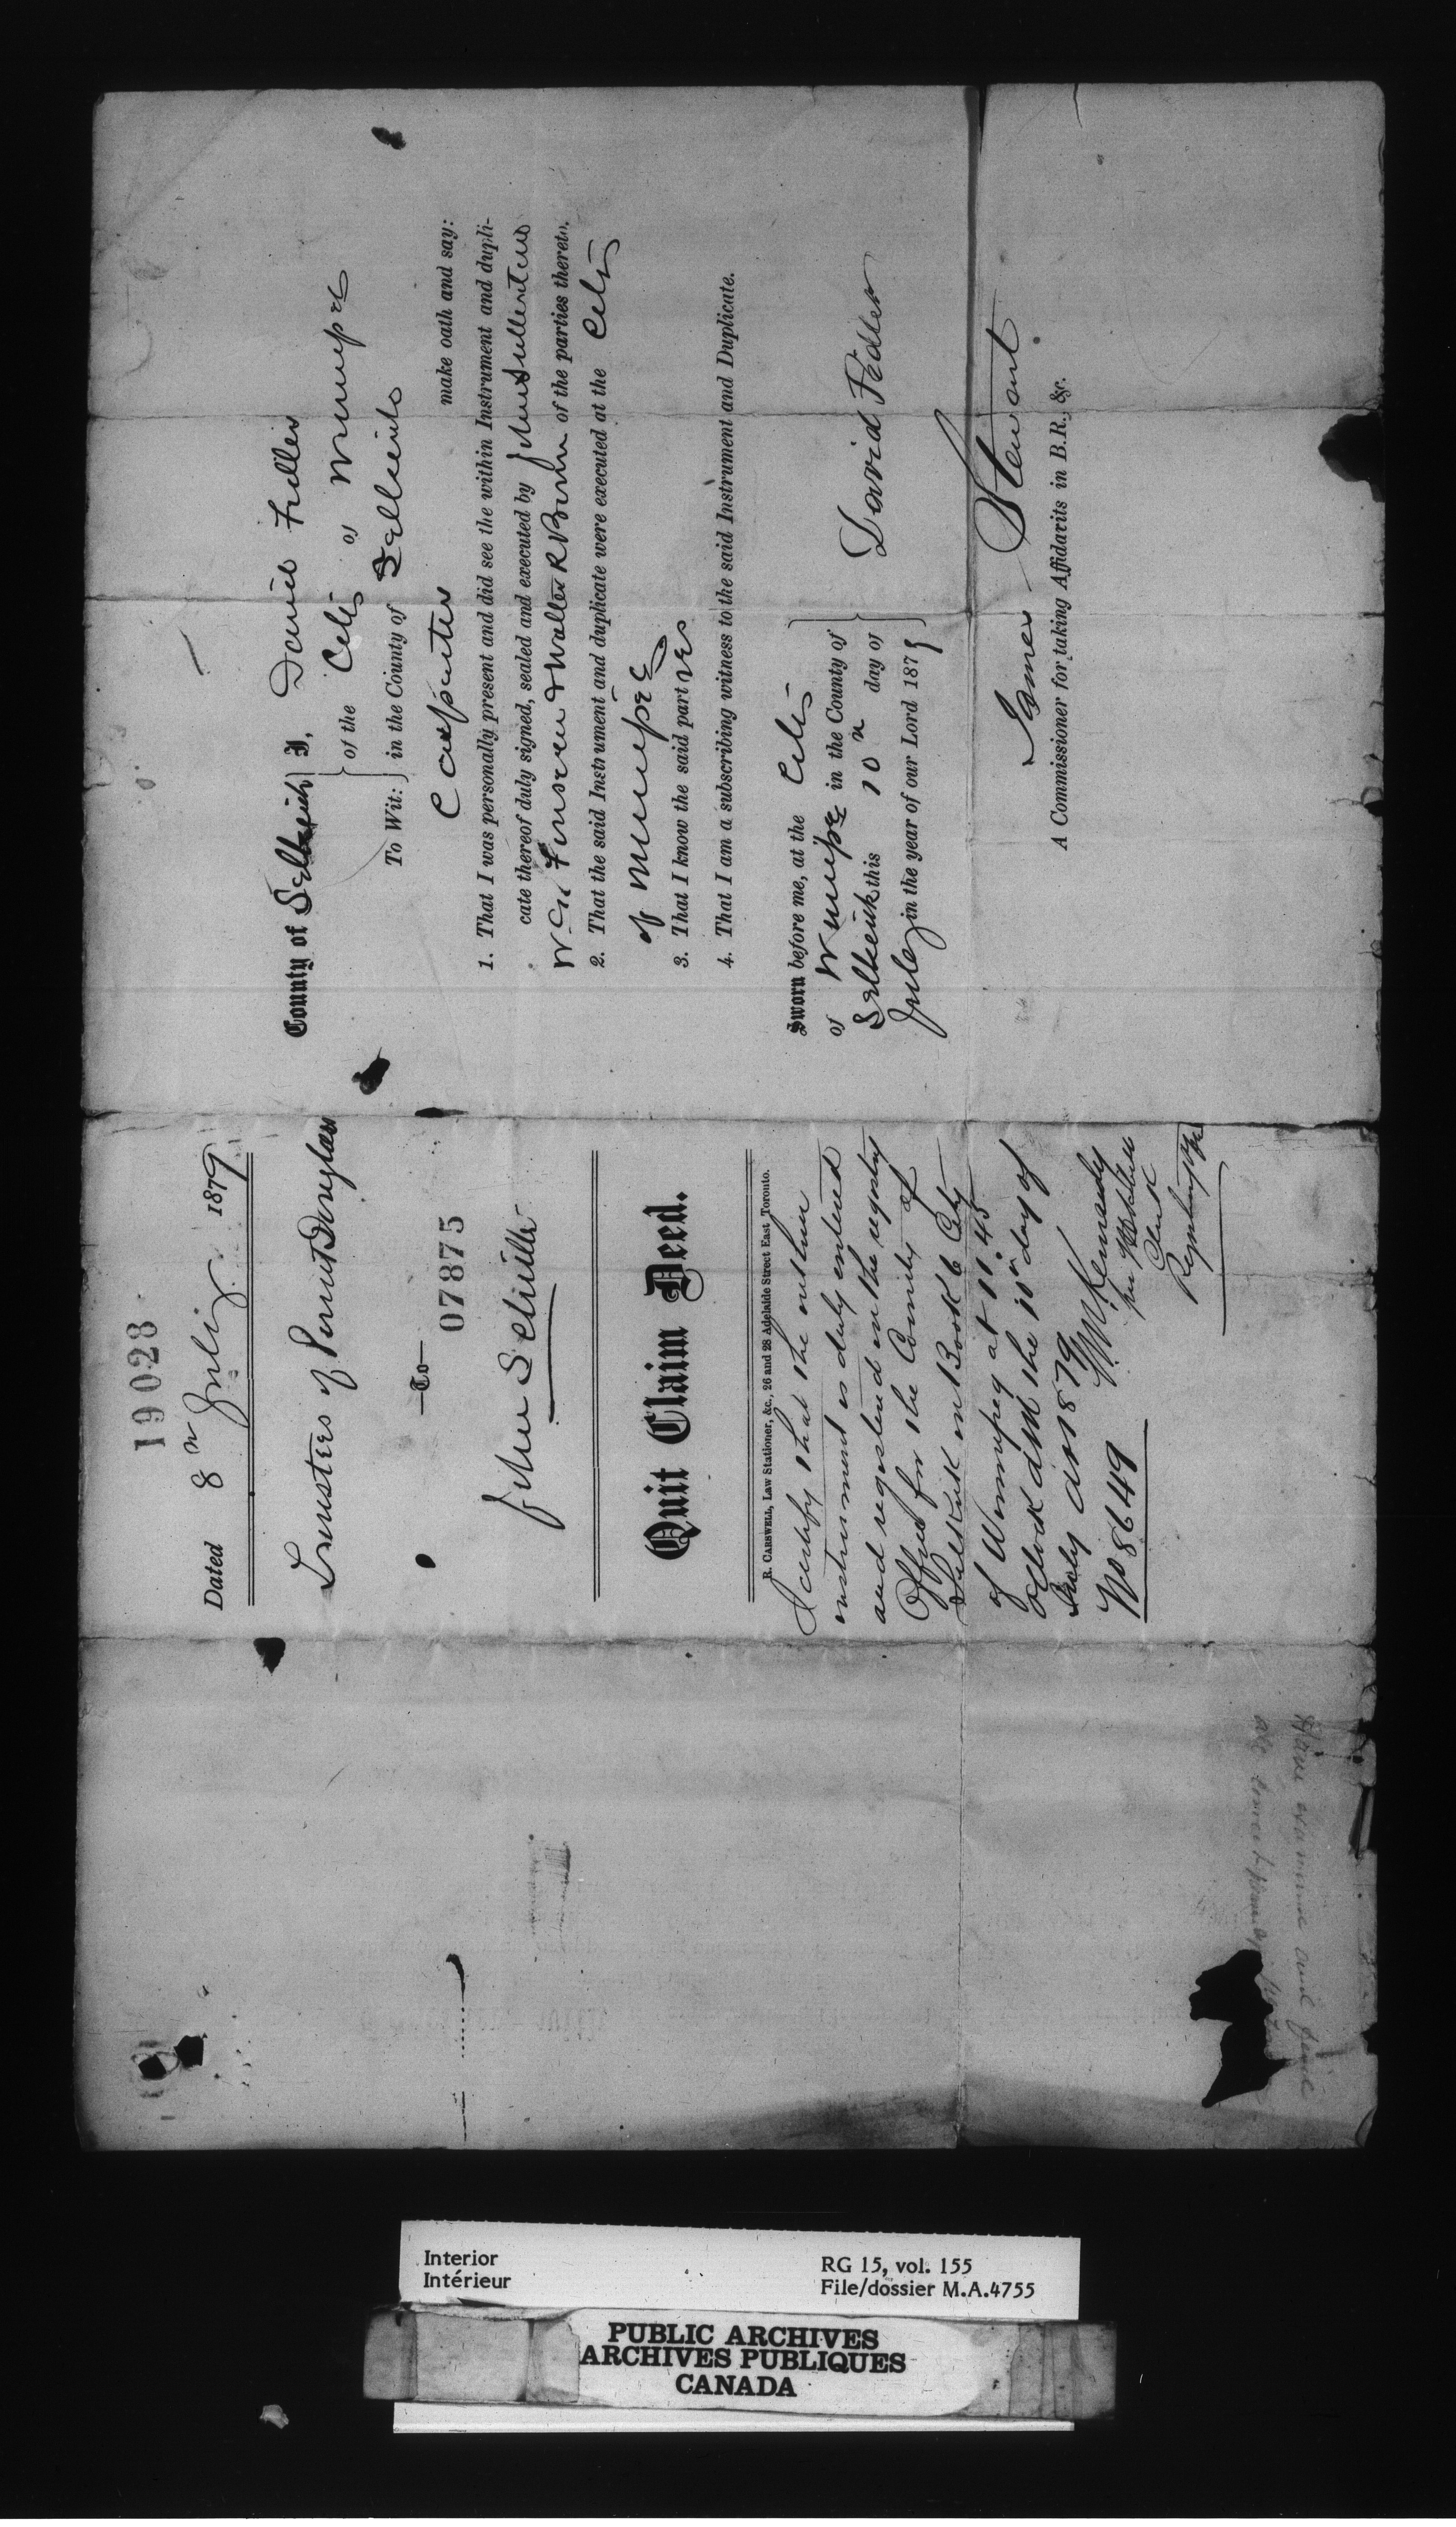 19028
Dated 8th July 1879
Trustees of Permt Douglass
—To—
07875
John Schultz
Quit Claim Deed.
R. CARSWELL, Law Stationer, &c., 26 and 28 Adelaide Street East Toronto.
I certify that the within
instrument is duly entered
and registered in the registry
Office for the County of
Selkirk in Book 6 City
of Winnipeg at 11.45
oClock AM the 10th day of
July AD 1879
No 8649
Kennedy
per
Clerk
County of Selkirk
To Wit:
I, David
of the City of Winnipeg
in the County of Selkirk
Carpenter make oath and say:
1. That I was personally present and did see the within Instrument and dupli-
cate thereof duly signed, sealed and executed by
Walter R Bown of the parties thereto.
2. That the said Instrument and duplicate were executed at the City
of Winnipeg
3. That I know the said parties
4. That I am a subscribing witness to the said Instrument and Duplicate.
Sworn before me, at the City
of Winnipeg in the County of
Selkirk this 10th day of
July in the year of our Lord 1879
David
James Stewart
A Commissioner for taking Affidavits in B.R., &c.
Interior
Intérieur
RG 15, vol. 155
File/dossier M.A.4755
PUBLIC ARCHIVES
ARCHIVES PUBLIQUES
CANADA